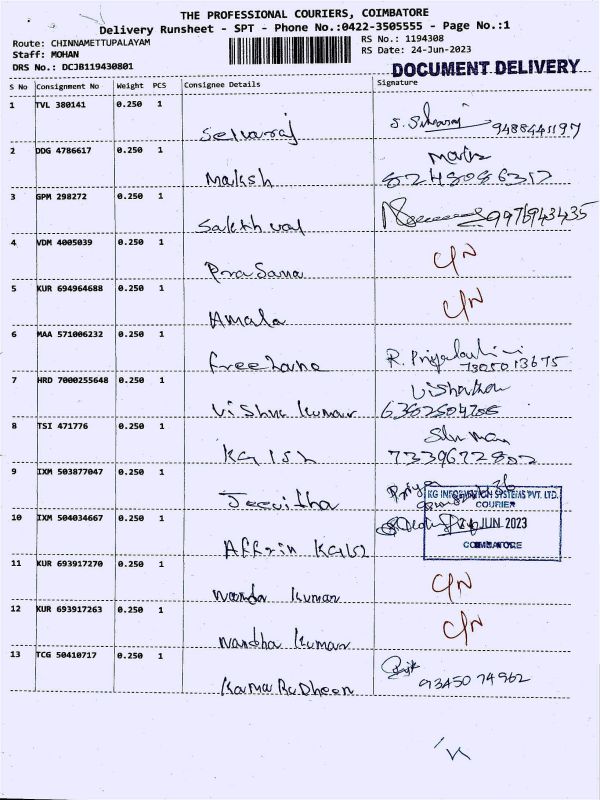 THE PROFESSIONAL COURIERS, COIMBATORE
Delivery Runsheet - SPT - Phone No.:0422-3505555 - Page No.:1
Route: CHINNAMETTUPALAYAM
RS No.: 1194308
Staff: MOHAN
RS Date: 24-Jun-2023
DRS No.: DCJB119430801
DOCUMENT DELIVERY
S No Consignment No Weight PCS Consignee Details Signature
1 TVL 380141 0.250 1
Selvaraj 9488441197
2 DDG 4786617 0.250 1
Maksh
3 GPM 298272 0.250 1
Sakthival 9976943435
4 VDM 4005039 0.250 1 C/N
PraSana
5 KUR 694964688 0.250 1 C/N
Amala
6 MAA 571006232 0.250 1
freezana R. 7305013675
7 HRD 7000255648 0.250 1
Vishnu Kumar
8 TSI 471776 0.250 1
KGISL
9 IXM 503877047 0.250 1
Jeevitha Priya
KG INFORMATION SYSTEMS PVT. LTD.
COURIER
10 IXM 504034667 0.250 1
24 JUN 2023
COIMBATORE
Affrin KGISL
11 KUR 693917270 0.250 1 C/N
Nanda Kumar
12 KUR 693917263 0.250 1 C/N
Nandha Kumar
13 TCG 50410717 0.250 1
KamaRuDheen 9345074962